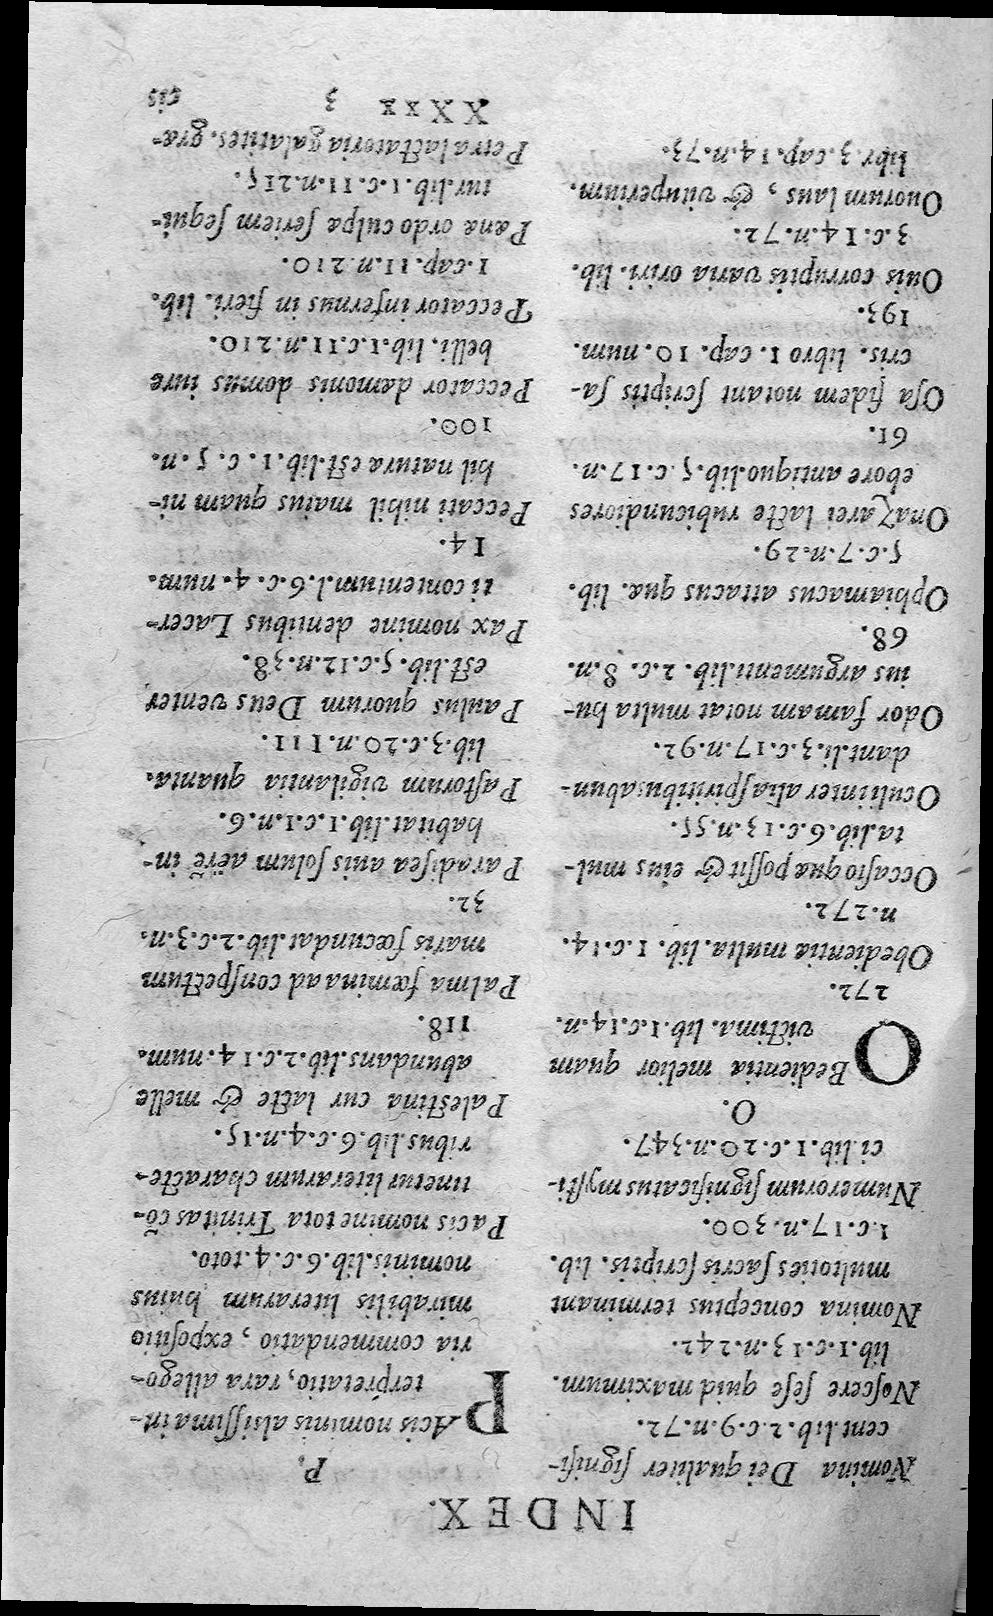 INDEX.
Nomina Dei qualiter ſignifi-
cent.lib.2.c.9.n.72.
Noſcere ſeſe quid maximum.
lib.1.c.13.n.242.
Nomina conceptus terminant
multoties ſacris ſcriptis. lib.
1.c.17.n.300.
Numerorum ſignificatus myſti-
ci lib.1.c.20.n.347.
O.
OBedientia melior quam
victima. lib.1.c.14.n.
272.
Obedientia multa.lib. 1.c.14.
n.272.
Occaſio quæ poſſit & eius mul-
ta.lib.6.c.13.n.55.
Oculi inter alia ſpiritibus abun-
dant.li.3.c.17.n.92.
Odor famam notat multa hu-
ius argumenti.lib. 2.c. 8.n.
68.
Ophiamacus attacus quæ. lib.
5.c.7.n.29.
Onaz arei lacte rubicundiores
ebore antiquo.lib.5.c.17.n.
61.
Oſa fidem notant ſcriptis ſa-
cris. libro 1.cap. 10. num.
193.
Ouis corruptis varia oriri. lib.
3.c.14.n.72.
Ouorum laus, & vituperium.
libr.3.cap.14.n.73.
P.
PAcis nominis alsiſſima in-
terpretatio, rara allego-
ria commendatio, expoſitio
mirabilis literarum huius
nominis.lib.6.c.4.toto.
Pacis nomine tota Trinitas cō-
tinetur literarum characte-
ribus.lib.6.c.4.n.15.
Paleſtina cur lacte & melle
abundans.lib.2.c.14.num.
118.
Palma fœmina ad conſpectum
maris fœcundat.lib.2.c.3.n.
32.
Paradiſea auis ſolum aëre in-
habitat.lib.1.c.1.n.6.
Paſtorum vigilantia quanta.
lib.3.c.20.n.111.
Paulus quorum Deus venter
eſt.lib.5.c.12.n.38.
Pax nomine dentibus Lacer-
ti contentium.l.6.c.4.num.
14.
Peccati nihil maius quam ni-
hil natura eſt.lib.1. c. 5.n.
100.
Peccator dæmonis domus iure
belli. lib.1.c.11.n.210.
Peccator infernus in fieri. lib.
1.cap.11.n.210.
Pœnæ ordo culpæ ſeriem ſequi-
tur.lib.1.c.11.n.215.
Petra lactatoria galatites. græ-
XXxx 3 cis